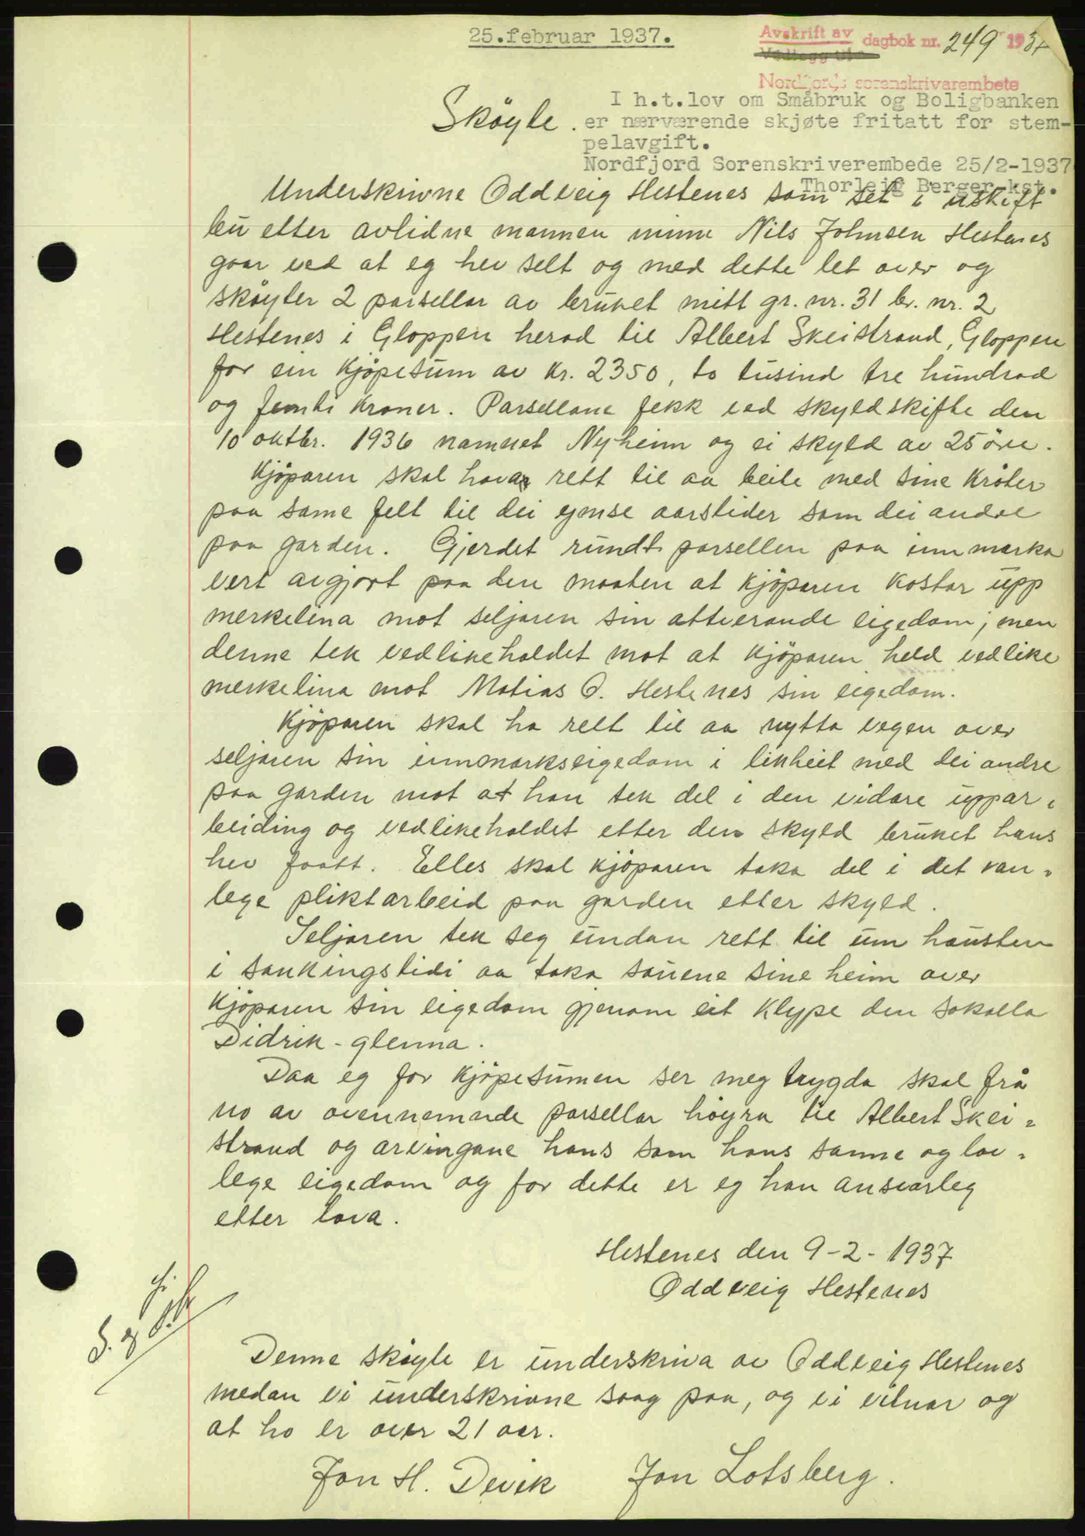 25.februar 1937.
Avskrift av dagbok nr. 249 1937
Vedlegg til
Nordfjords sorenskrivarembete
I h.t.lov om Småbruk og Boligbanken
er nærværende skjøte fritatt for stem-
pelavgift.
Nordfjord Sorenskriverembede 25/2-1937
Thorleif Berger kst.
Skøyte.
Underskrivne Oddveig Hestenes som set i uskift
bu etter avlidne mannen minn Nils Johnsen Hestenes
gaar ved at eg hev selt og med dette let over og
skøyter 2 parsellar av bruket mitt gr. nr. 31 br. nr. 2
Hestenes i Gloppen herad til Albert Skeistrand, Gloppen
for ein kjøpesum av kr. 2350, to tusind tre hundrad
og femti kroner. Parsellane fekk ved skyldskifte den
10 oktbr. 1936 namnet Nyheim og ei skyld av 25 øre.
Kjøparen skal hava rett til aa beite med sine krøter
paa same felt til dei ymse aarstider som dei andre
paa garden. Gjerdet rundt parsellen paa innmarka
vert avgjort paa den maaten at kjøparen kostar upp
merkelina mot seljaren sin attverande eigedom; men
denne tek vedlikeholdet mot at kjøparen held vedlike
merkelina mot Matias O. Hestenes sin eigedom.
Kjøparen skal ha rett til aa nytta vegen over
seljaren sin innmarkseigedom i likheit med dei andre
paa garden mot at han tek del i den vidare uppar-
beiding og vedlikeholdet etter den skyld bruket hans
hev faatt. Elles skal kjøparen taka del i det van-
lege pliktarbeid paa garden etter skyld.
Seljaren tek seg undan rett til um hausten
i sankingstidi aa taka sauene sine heim over
kjøparen sin eigedom gjenom eit klype den sokalla
Didrik-glenna.
Daa eg for kjøpesumen ser meg trygda skal frå
no av ovennemnde parsellar høyra til Albert Skei-
strand og arvingane hans som hans sanne og lov-
lege eigedom og for dette er eg han ansvarleg
etter lova.
Hestenes den 9-2-1937
Oddveig Hestenes
Denne skøyte er underskriva av Oddveig Hestenes
medan vi underskrivne saag paa, og vi vitnar og
at ho er over 21 aar.
Jon H. Devik Jon Lotsberg.